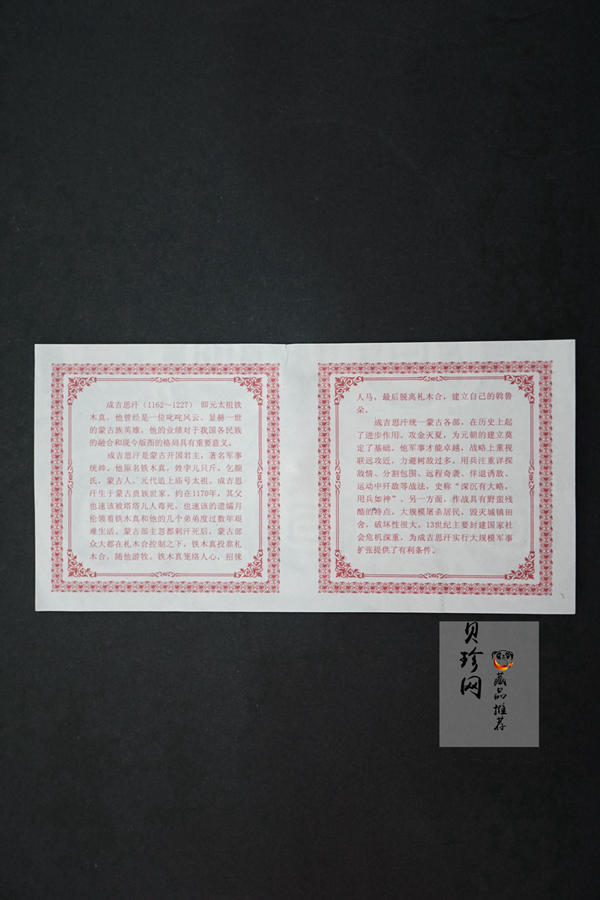 成吉思汗（1162～1227） 即元太祖铁
木真。他曾经是一位叱咤风云、显赫一世
的蒙古族英雄。他的业绩对于我国各民族
的融合和现今版图的格局具有重要意义。
成吉思汗是蒙古开国君主，著名军事
统帅。他原名铁木真，姓孛儿只斤，乞颜
氏，蒙古人。元代追上庙号太祖。成吉思
汗生于蒙古贵族世家。约在1170年，其父
也速该被塔塔儿人毒死，也速该的遗孀月
伦领着铁木真和他的几个弟弟度过数年艰
难生活。蒙古部主忽都剌汗死后，蒙古部
众大都在札木合控制之下，铁木真投靠札
木合，随他游牧。铁木真笼络人心，招徕
人马，最后脱离札木合，建立自己的斡鲁
朵。
成吉思汗统一蒙古各部，在历史上起
了进步作用。攻金灭夏，为元朝的建立奠
定了基础。他军事才能卓越，战略上重视
联远攻近，力避树敌过多。用兵注重详探
敌情、分割包围、远程奇袭、佯退诱敌、
运动中歼敌等战法，史称“深沉有大略，
用兵如神”。另一方面，作战具有野蛮残
酷的特点，大规模屠杀居民，毁灭城镇田
舍，破坏性很大。13世纪主要封建国家社
会危机深重，为成吉思汗实行大规模军事
扩张提供了有利条件。
贝珍网
藏品推荐